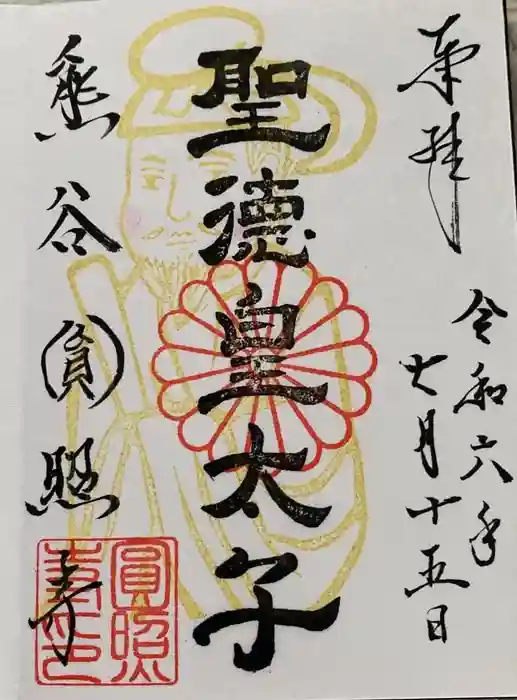 奉拝
令和六年
七月十五日
聖德皇太子
熊谷圓照寺
圓照
寺印